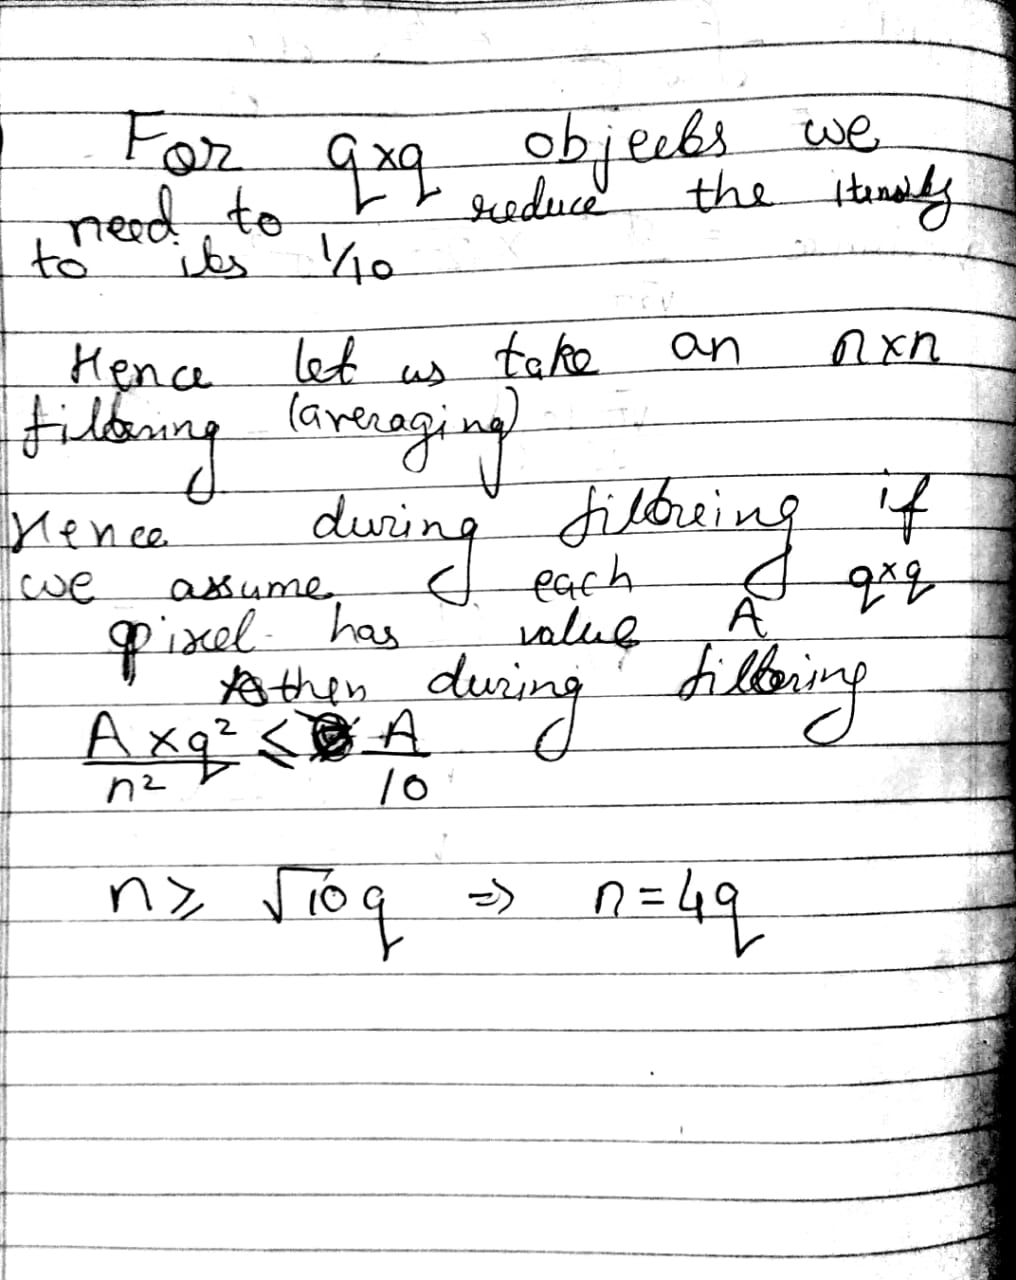 For q×q objects we
need to reduce the itensity
to its 1/10
Hence let us take an n×n
filtering (averaging)
Hence during filtreing if
we assume each q×q
pixel has value A
then during filtering
A×q²/n² ≤ A/10
n ≥ √10 q ⇒ n=4q